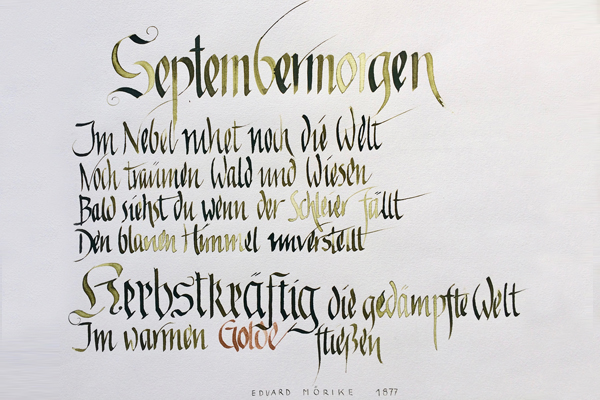 Septembermorgen
Im Nebel ruhet noch die Welt
Noch träumen Wald und Wiesen
Bald siehst du wenn der Schleier fällt
Den blauen Himmel unverstellt
Herbstkräftig die gedämpfte Welt
Im warmen Golde fließen
EDUARD MÖRIKE 1877